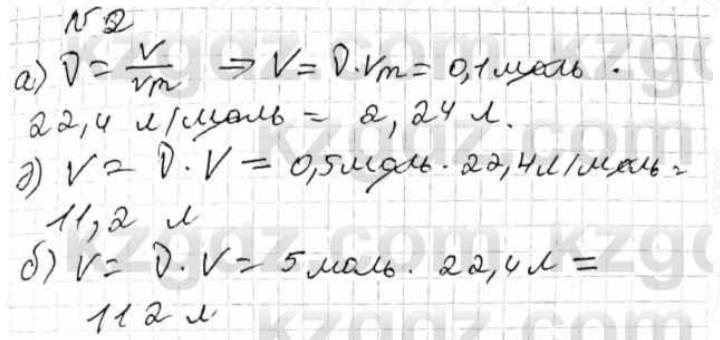 №2
а) ν = V/Vm ⇒ V = ν·Vm = 0,1 моль ·
22,4 л/моль = 2,24 л.
д) V = ν·V = 0,5 моль · 22,4 л/моль =
11,2 л
б) V = ν·V = 5 моль · 22,4 л =
112 л